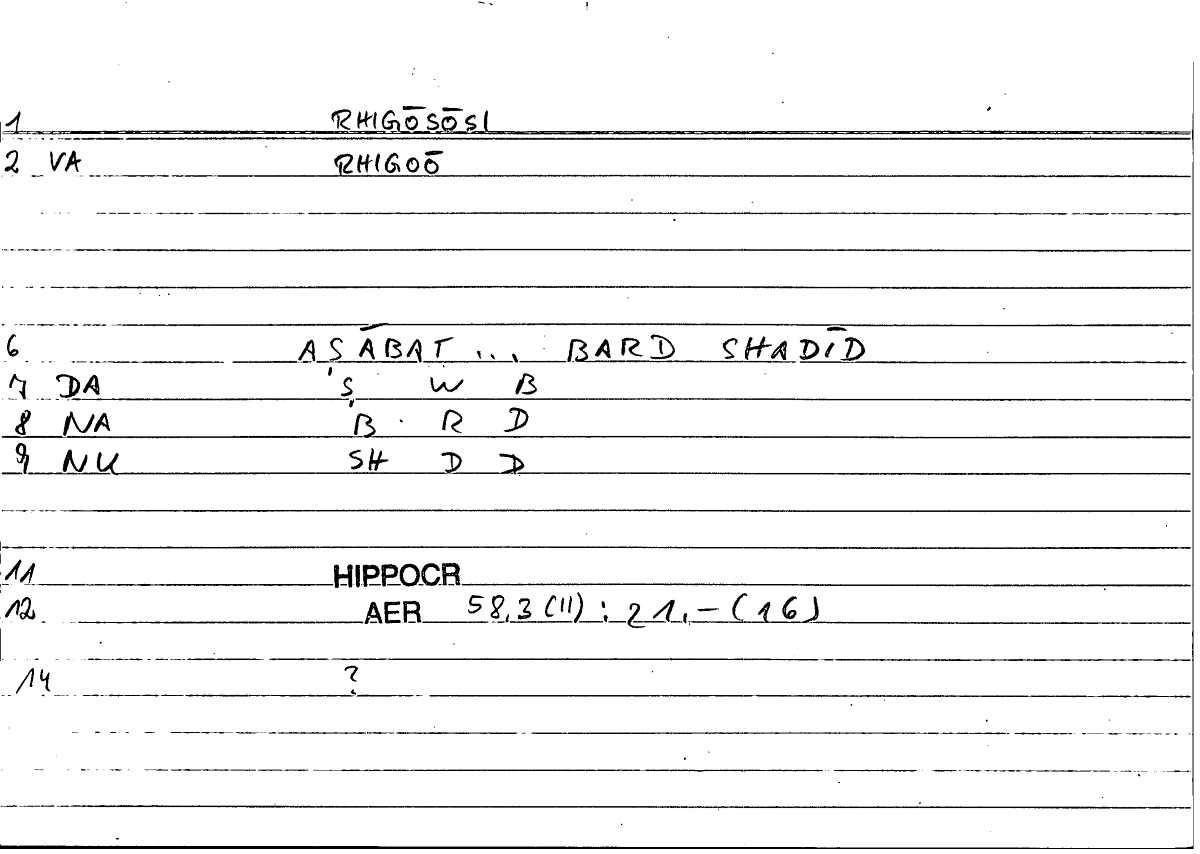 1 RHIGŌSŌSI
2 VA RHIGOŌ
6 AṢĀBAT ... BARD SHADĪD
7 DA Ṣ W B
8 NA B R D
9 NU SH D D
11 HIPPOCR
12 AER 58,3 (11) : 21,-(16)
14 ?